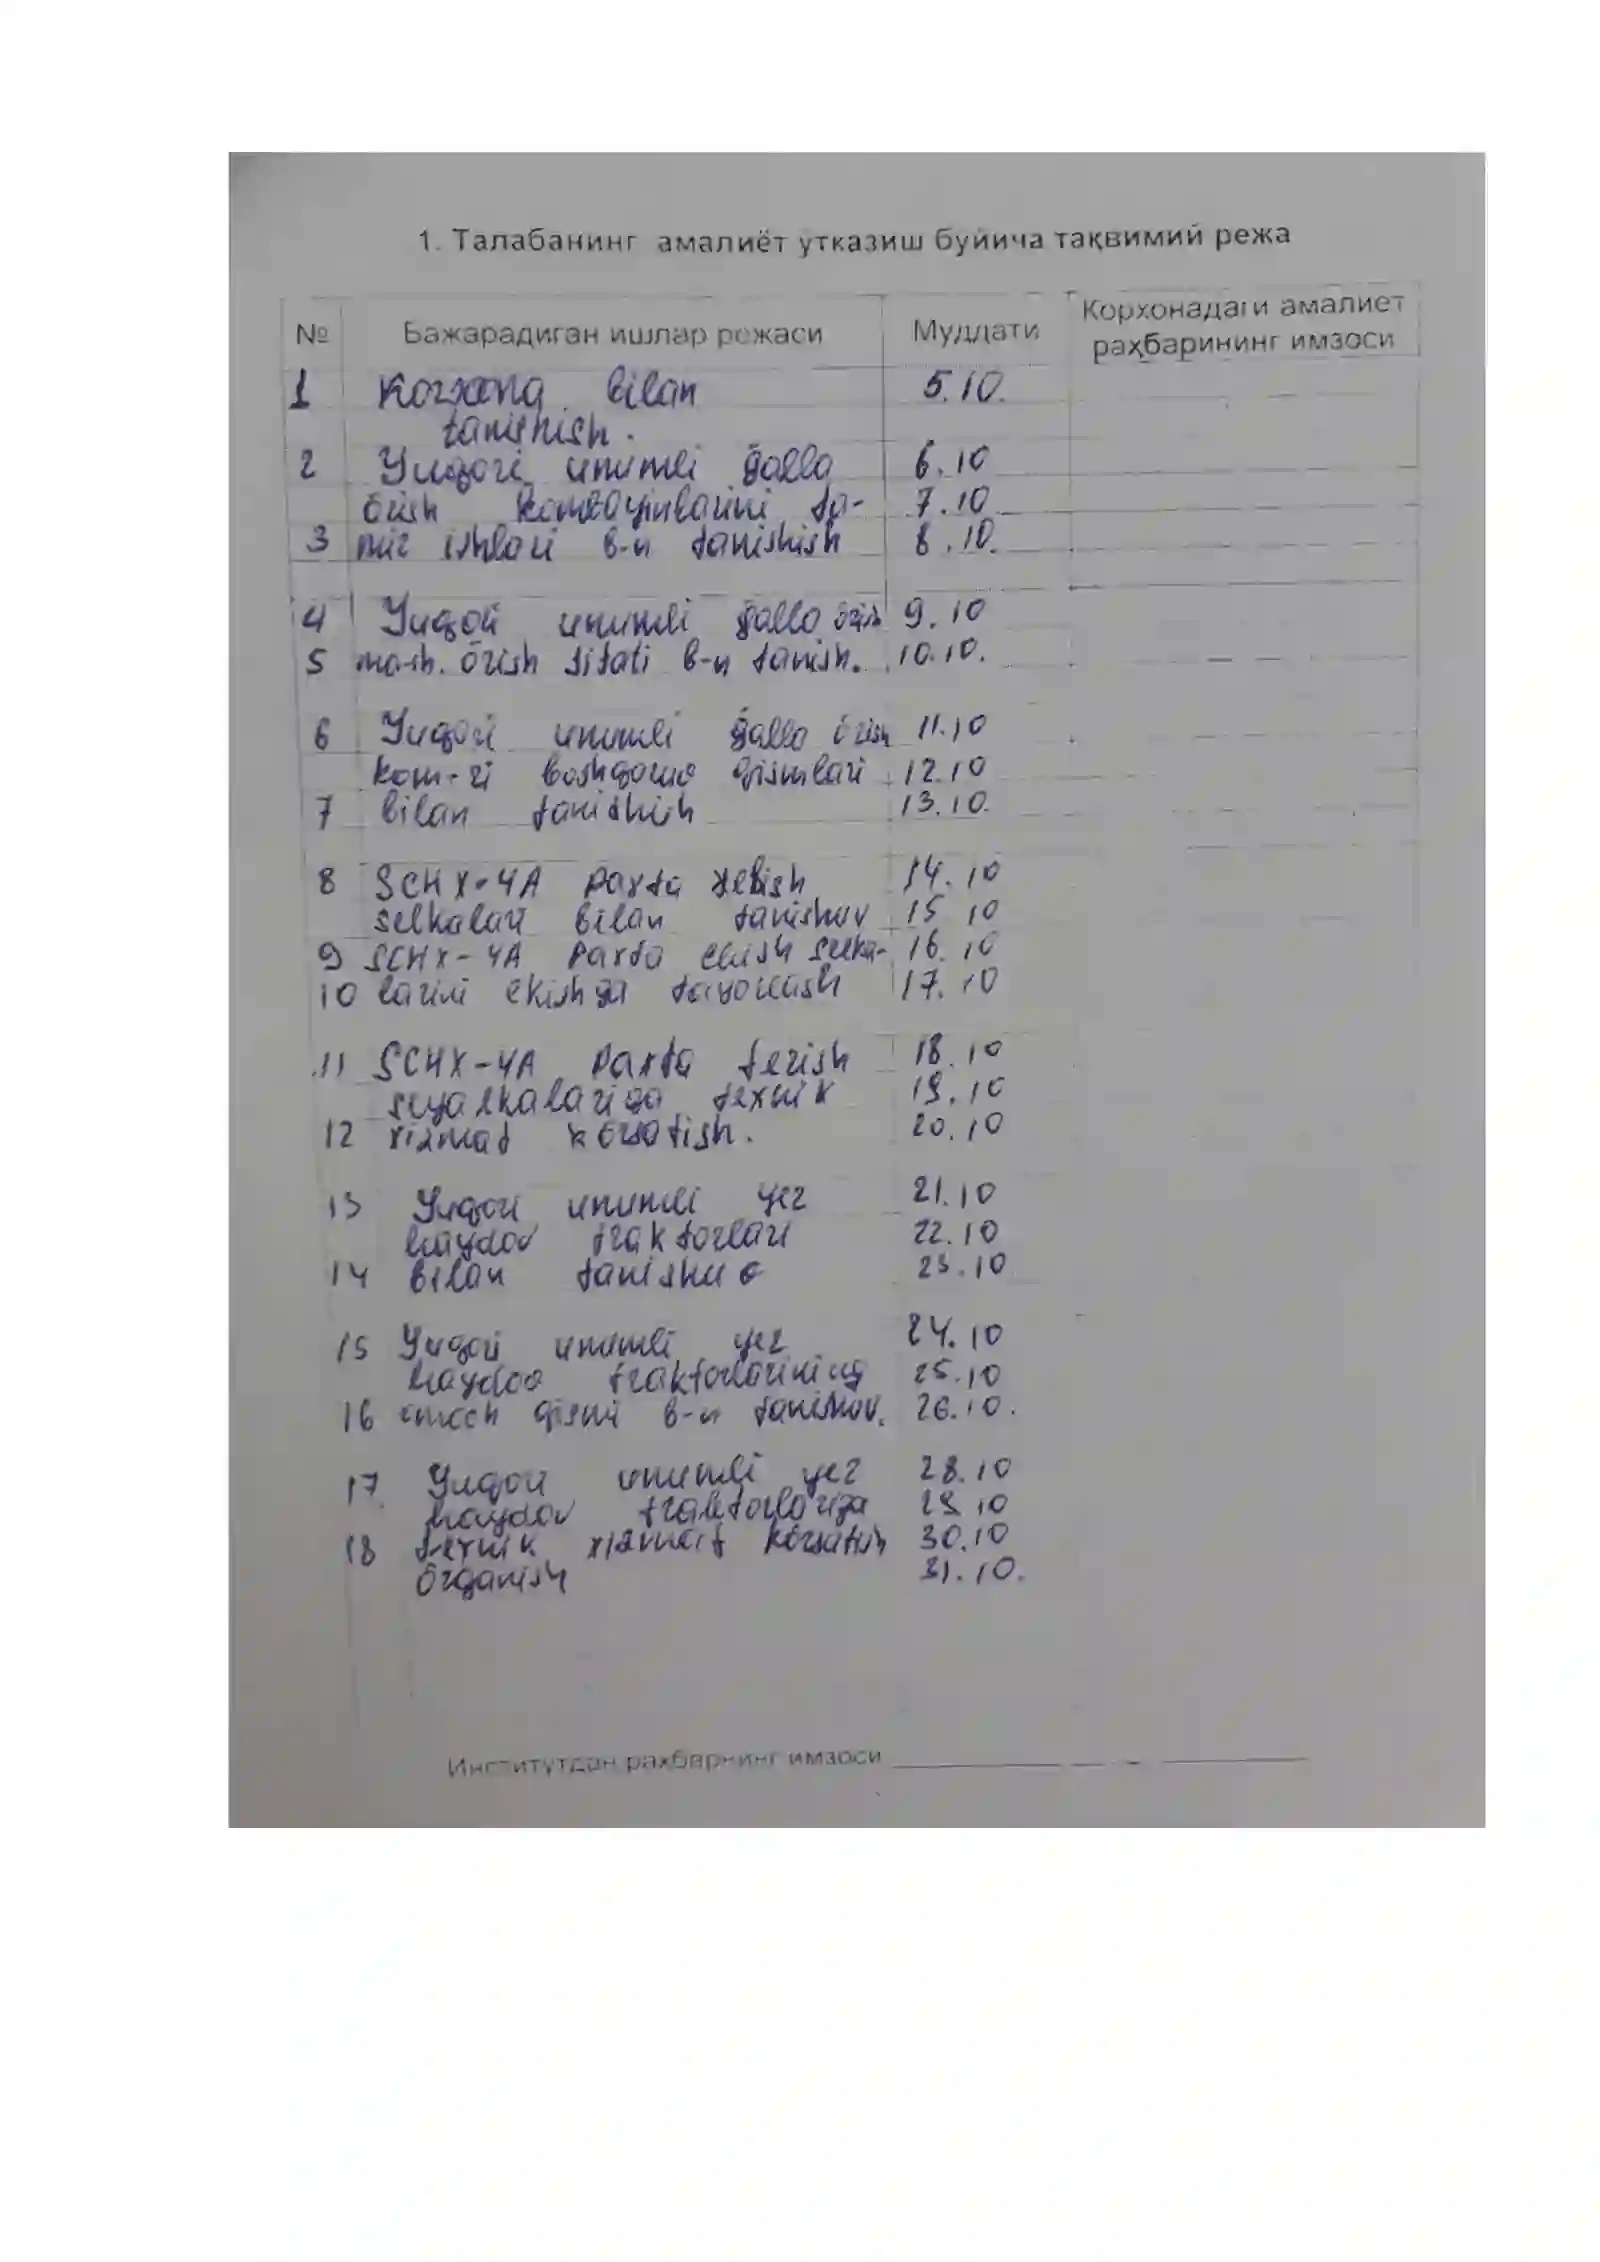 1. Талабанинг амалиёт утказиш буйича тақвимий режа
№ Бажарадиган ишлар режаси Муддати Корхонадаги амалиет раҳбарининг имзоси
1 Korxona bilan 5.10.
tanishish.
2 Yuqori unumli ğalla 6.10
õrish kombayinlarini ta- 7.10
3 mir ishlari b-n tanishish 8.10.
4 Yuqori unumli ğalla õrish 9.10
5 mash. õrish sifati b-n tanish. 10.10.
6 Yuqori unumli ğalla õrish 11.10
kom-ri boshqaruv qismlari 12.10
7 bilan tanishish 13.10.
8 SCHX-4A paxta 14.10
selkalari bilan tanishuv 15 10
9 SCHX-4A paxta ekish selka- 16.10
10 larini ekishga tayorlash 17.10
11 SCHX-4A paxta terish 18.10
seyalkalariga texnik 19.10
12 xizmat kõrsatish. 20.10
13 Yuqori unumli yer 21.10
haydov traktorlari 22.10
14 bilan tanishuv 23.10
15 Yuqori unumli yer 24.10
haydov traktorlarining 25.10
16 omoch qismi b-n tanishuv. 26.10.
17 Yuqori unumli yer 28.10
haydov traktorlariga 29.10
18 texnik xizmat kõrsatish 30.10
õrganish 31.10.
Институтдан рахбарнинг имзоси